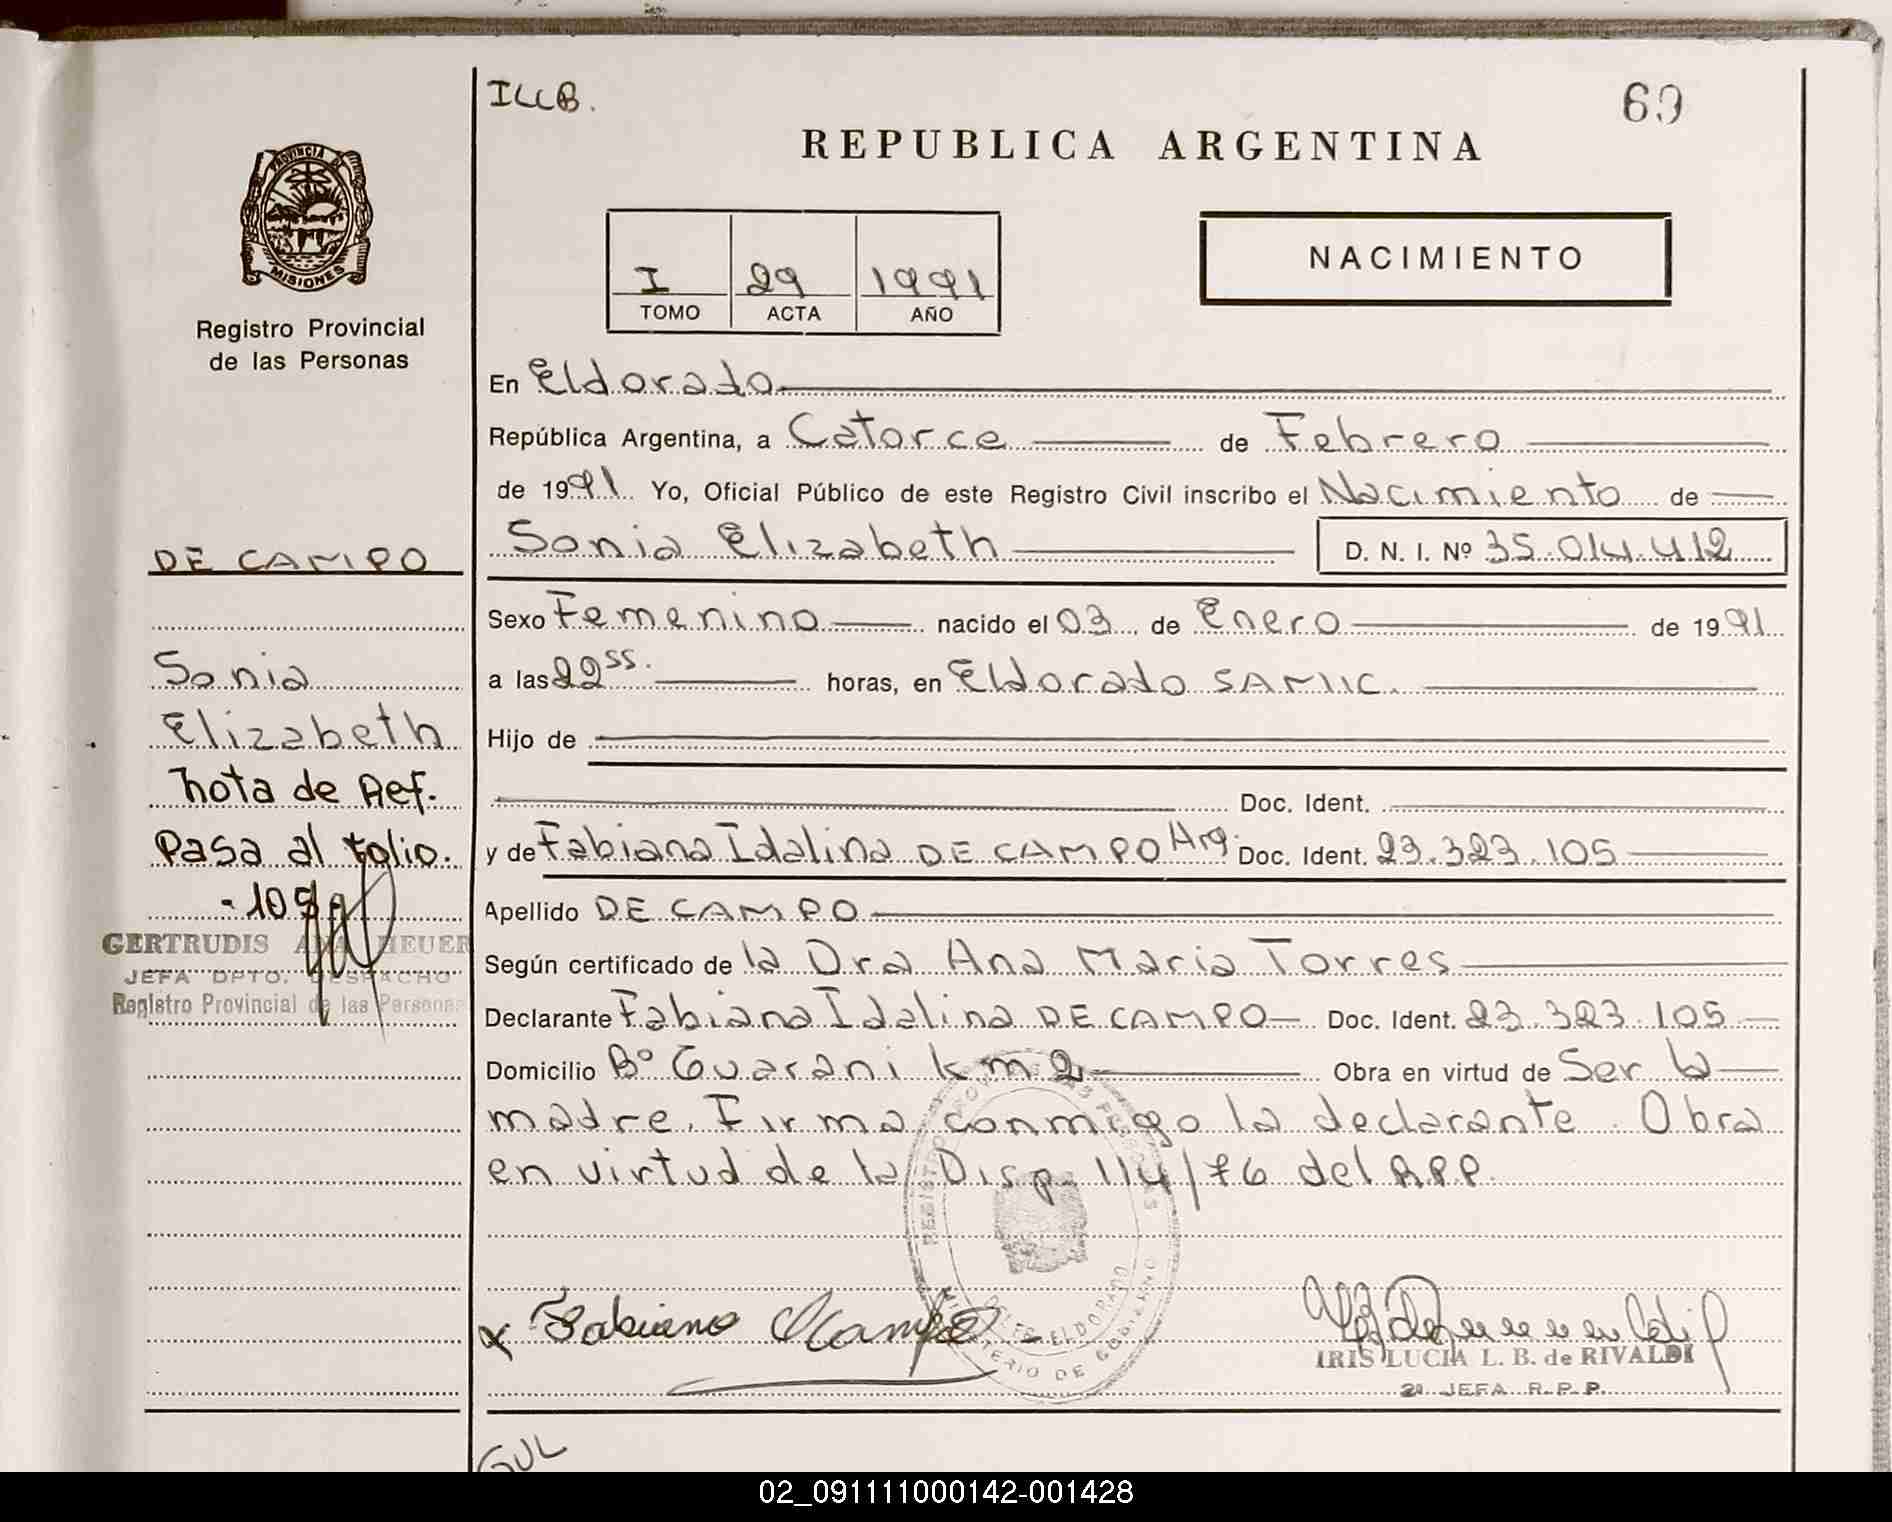 ILLB.
69
REPUBLICA ARGENTINA
PROVINCIA DE
MISIONES
Registro Provincial
de las Personas
I 29 1991
TOMO ACTA AÑO
NACIMIENTO
En Eldorado
República Argentina, a Catorce de Febrero
de 1991 Yo, Oficial Público de este Registro Civil inscribo el Nacimiento de
Sonia Elizabeth D. N. I. Nº 35.014.412
DE CAMPO
Sexo Femenino nacido el 03 de Enero de 1991
Sonia
a las 22 55. horas, en Eldorado SAMIC.
Elizabeth
Hijo de
nota de Ref.
Doc. Ident.
Pasa al folio.
y de Fabiana Idalina DE CAMPO Arg. Doc. Ident. 23.323.105
- 105
Apellido DE CAMPO
GERTRUDIS ANA HEUER
JEFA DPTO. DESPACHO
Registro Provincial de las Personas
Según certificado de la Dra Ana Maria Torres
Declarante Fabiana Idalina DE CAMPO Doc. Ident. 23.323.105
Domicilio Bº Guarani km 2 Obra en virtud de Ser la
madre. Firma conmigo la declarante. Obra
en virtud de la Disp. 114/76 del RPP.
MINISTERIO DE GOBIERNO
ELDORADO
x Fabiana
IRIS LUCIA L. B. de RIVALDI
2ª JEFA R. P. P.
GUL
02_091111000142-001428